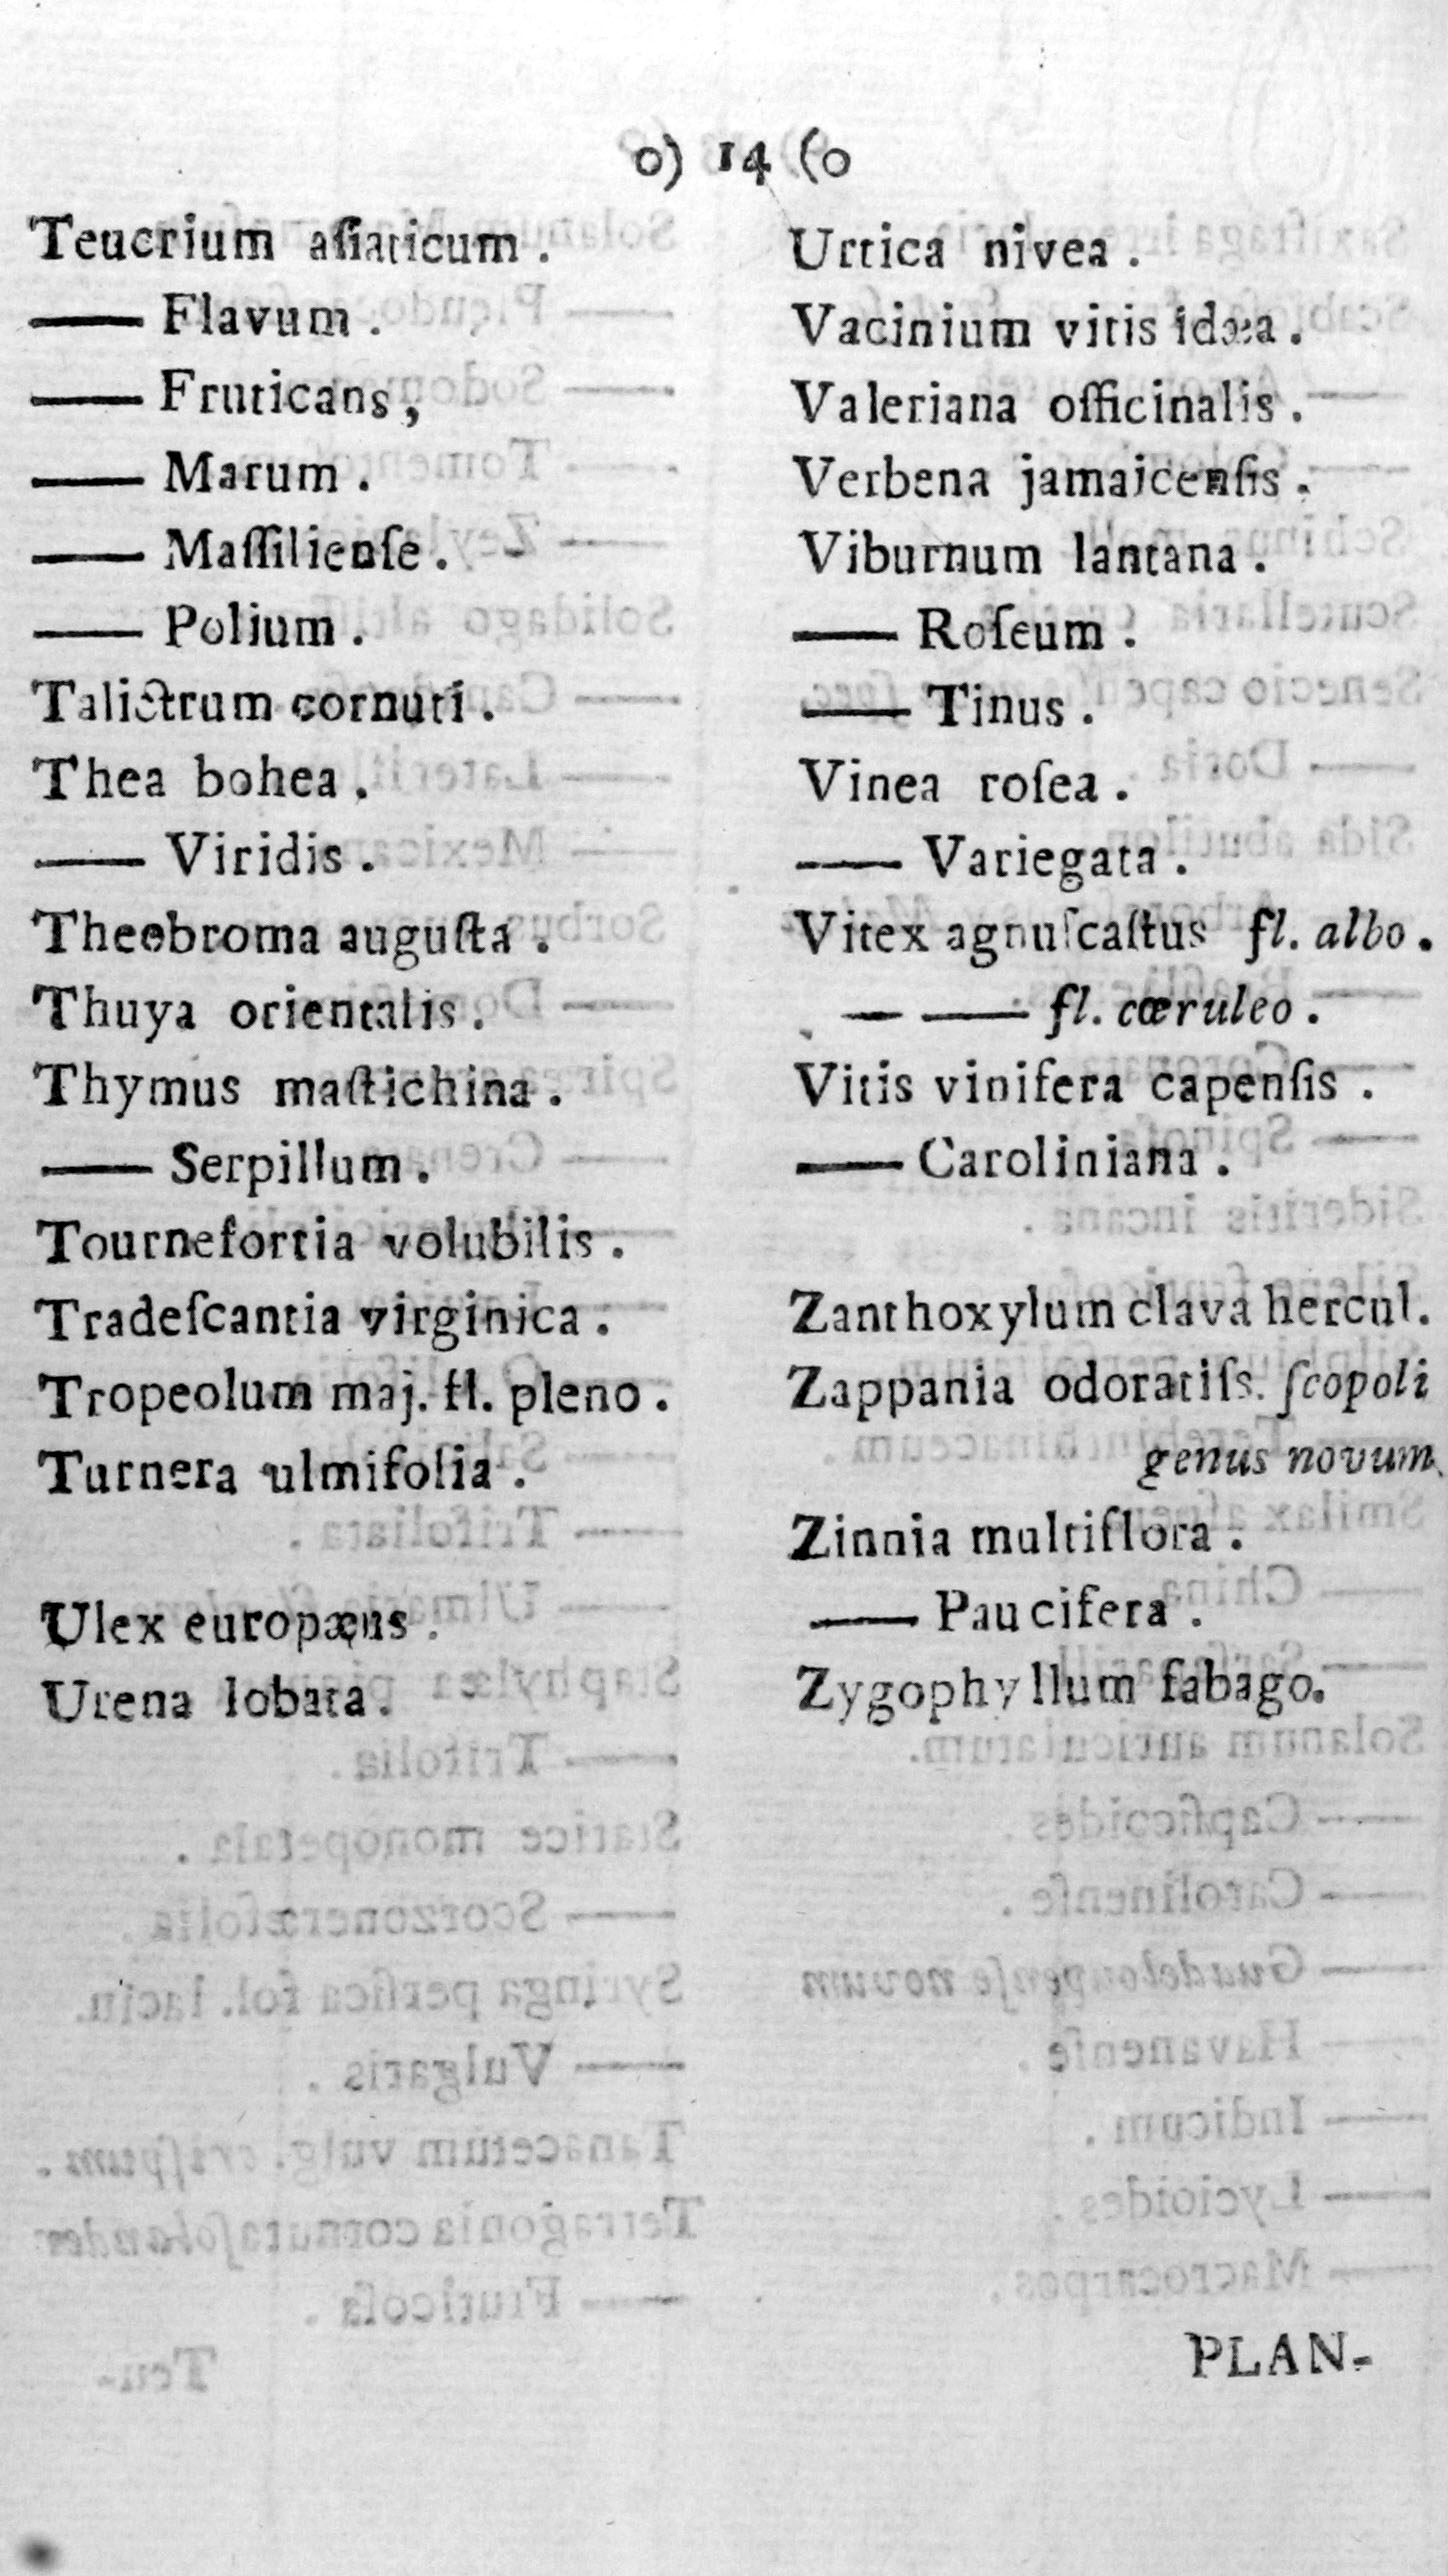 o) 14 (o
Teucrium aſiaticum.
—— Flavum.
—— Fruticans,
—— Marum.
—— Maſſilienſe.
—— Polium.
Talictrum cornuti.
Thea bohea.
—— Viridis.
Theobroma auguſta.
Thuya orientalis.
Thymus maſtichina.
—— Serpillum.
Tournefortia volubilis.
Tradeſcantia virginica.
Tropeolum maj. fl. pleno.
Turnera ulmifolia.
Ulex europæus.
Urena lobata.
Urtica nivea.
Vacinium vitis idæa.
Valeriana officinalis.
Verbena jamaicenſis.
Viburnum lantana.
—— Roſeum.
—— Tinus.
Vinea roſea.
—— Variegata.
Vitex agnuſcaſtus fl. albo.
— —— fl. cœruleo.
Vitis vinifera capenſis.
—— Caroliniana.
Zanthoxylum clava hercul.
Zappania odoratiſs. ſcopoli
genus novum.
Zinnia multiflora.
—— Paucifera.
Zygophyllum fabago.
PLAN-